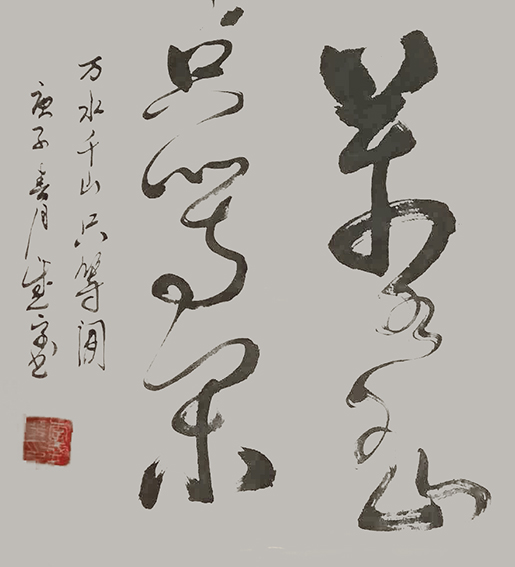 萬水千山
只等闲
万水千山只等闲
庚子春月